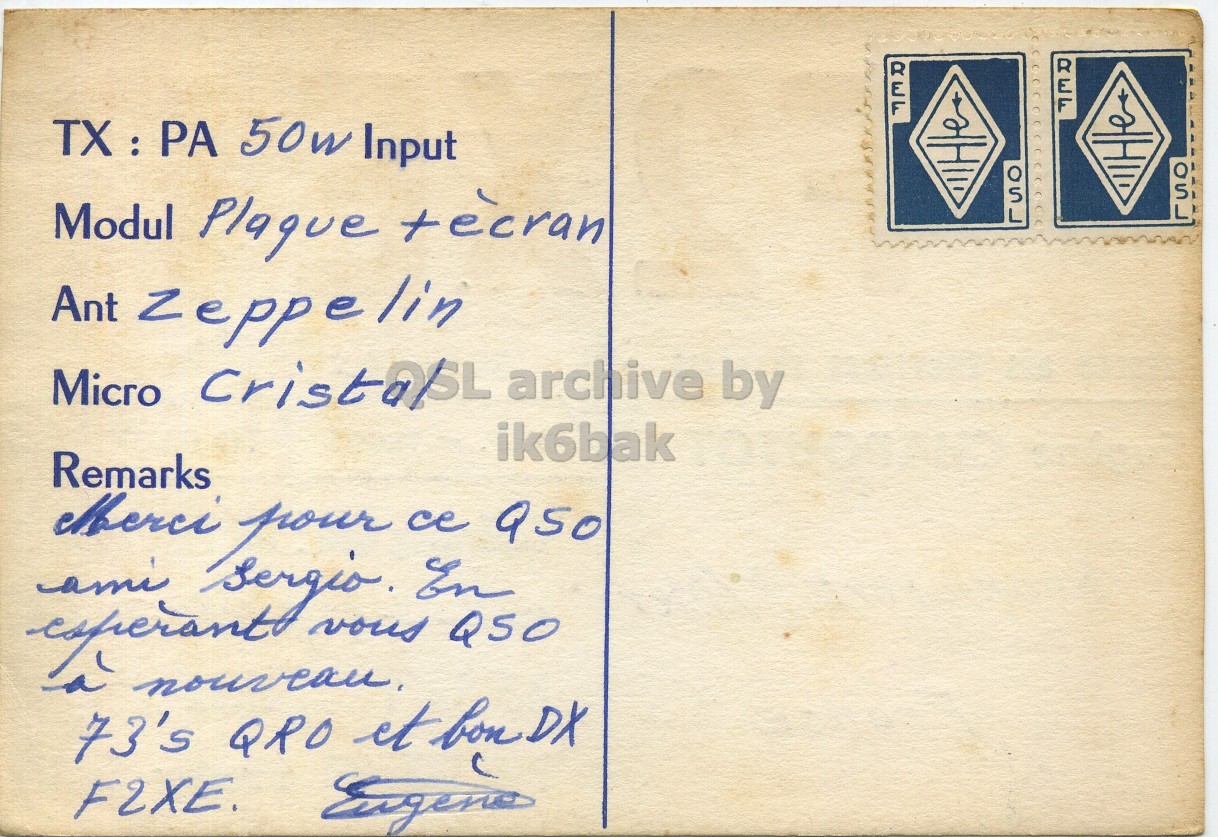 TX : PA 50w Input
Modul Plaque + ècran
Ant Zeppelin
Micro Cristal
Remarks
Merci pour ce QSO
ami Sergio. En
espèrant vous QSO
à nouveau.
73's QRO et bon DX
F2XE. Eugène
REF
QSL
REF
QSL
QSL archive by
ik6bak